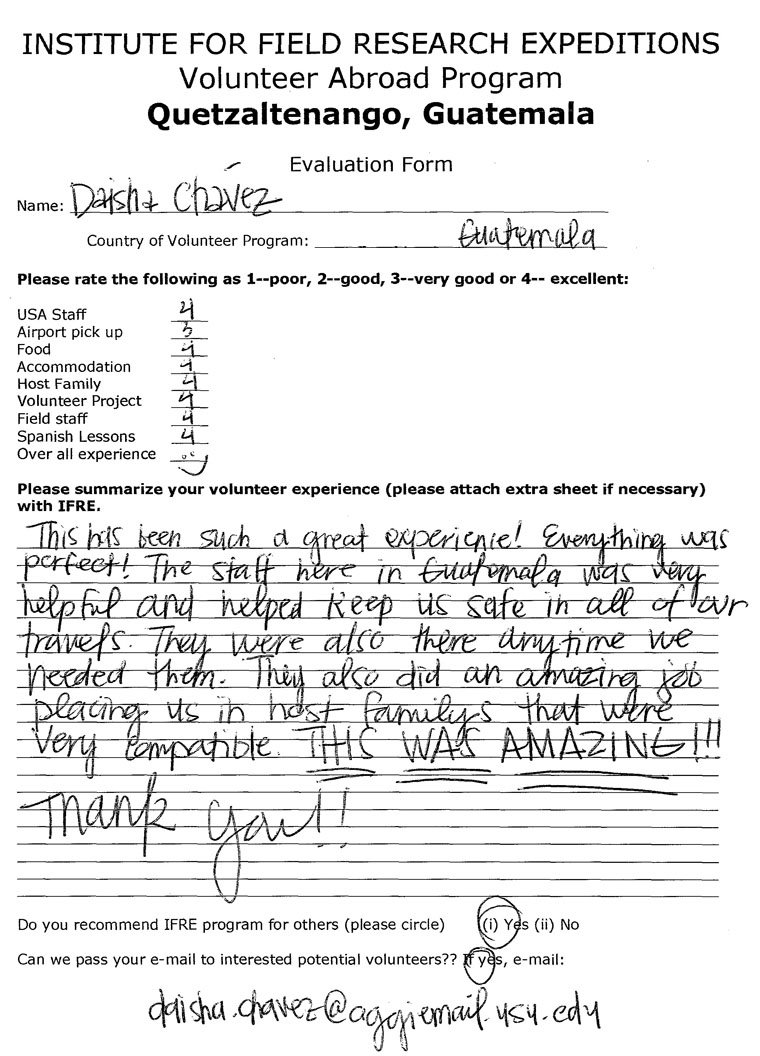 INSTITUTE FOR FIELD RESEARCH EXPEDITIONS
Volunteer Abroad Program
Quetzaltenango, Guatemala
Evaluation Form
Name: Daisha Chavez
Country of Volunteer Program: Guatemala
Please rate the following as 1--poor, 2--good, 3--very good or 4-- excellent:
USA Staff 4
Airport pick up 3
Food 4
Accommodation 4
Host Family 4
Volunteer Project 4
Field staff 4
Spanish Lessons 4
Over all experience
Please summarize your volunteer experience (please attach extra sheet if necessary)
with IFRE.
This has been such a great experience! Everything was
perfect! The staff here in Guatemala was very
helpful and helped keep us safe in all of our
travels. They were also there anytime we
needed them. They also did an amazing job
placing us in host familys that were
very compatible. THIS WAS AMAZING!!!
Thank you!!
Do you recommend IFRE program for others (please circle) (i) Yes (ii) No
Can we pass your e-mail to interested potential volunteers?? If yes, e-mail:
daisha.chavez@aggiemail.usu.edu